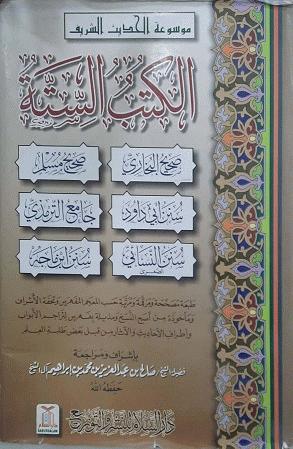 موسوعة الحديث الشريف
الكتب الستة
صحيح البخاري
صحيح مسلم
سنن أبي داود
جامع الترمذي
سنن النسائي
الصغرى
سنن ابن ماجه
طبعة مصححة ومرقمة ومرتبة حسب المعجم المفهرس وتحفة الأشراف
ومأخوذة من أصح النسخ ومذيلة بفهرس لتراجم الأبواب
وأطراف الأحاديث والآثار من قبل بعض طلبة العلم
بإشراف ومراجعة
فضيلة الشيخ صالح بن عبد العزيز بن محمد بن إبراهيم آل الشيخ
حفظه الله
دار السلام للنشر والتوزيع